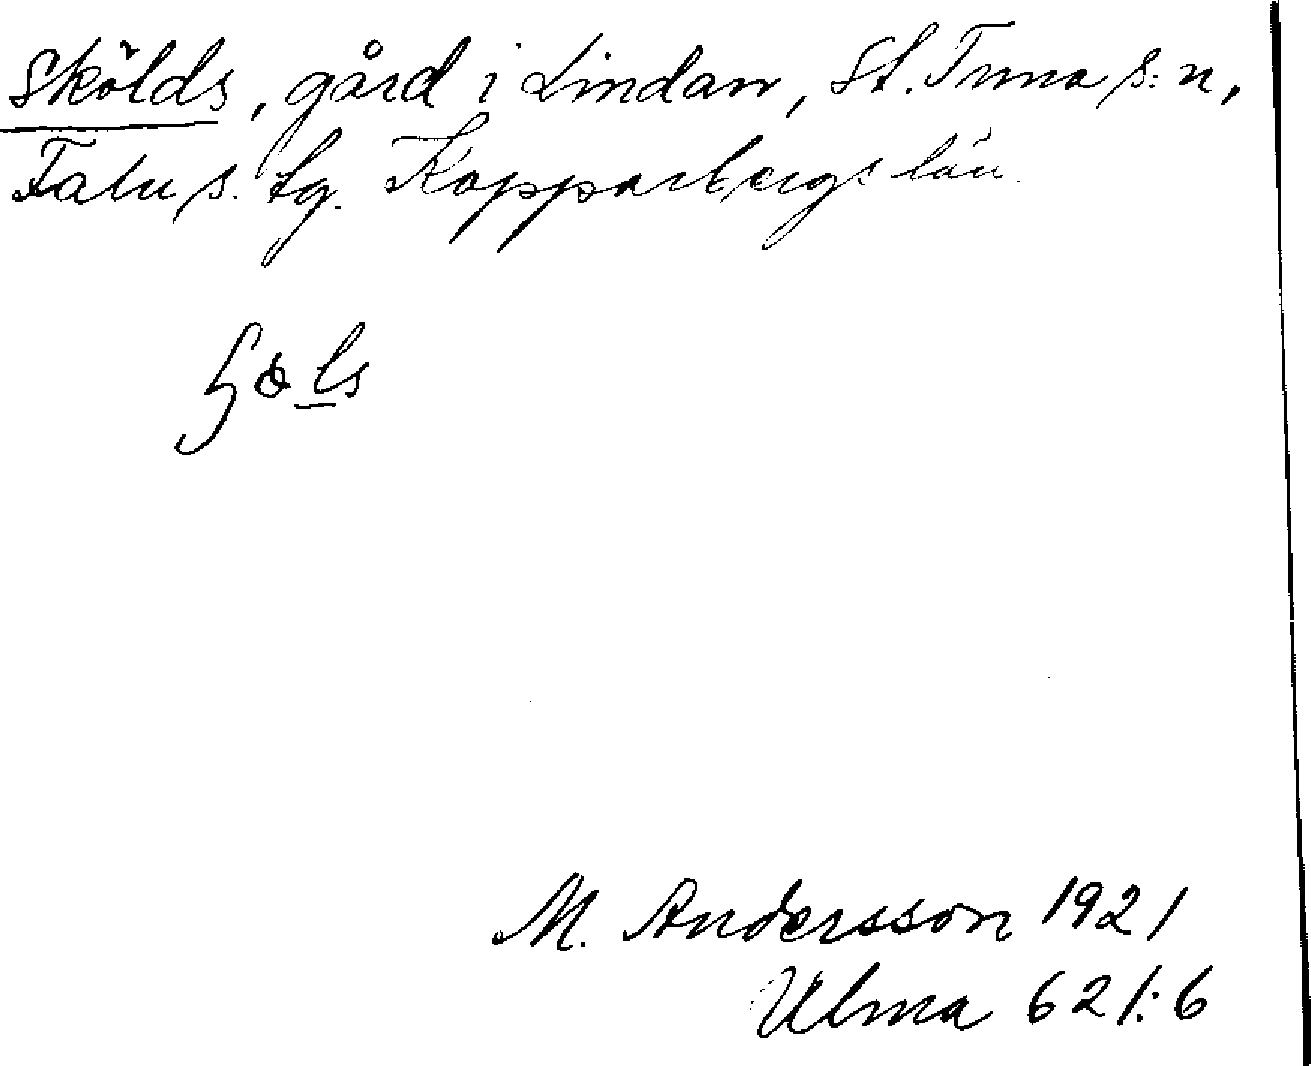 Skölds, gård i Lindan, St. Tuna s:n,
Falu s. tg. Kopparbergs län.
M. Andersson 1921
Ulma 621:6